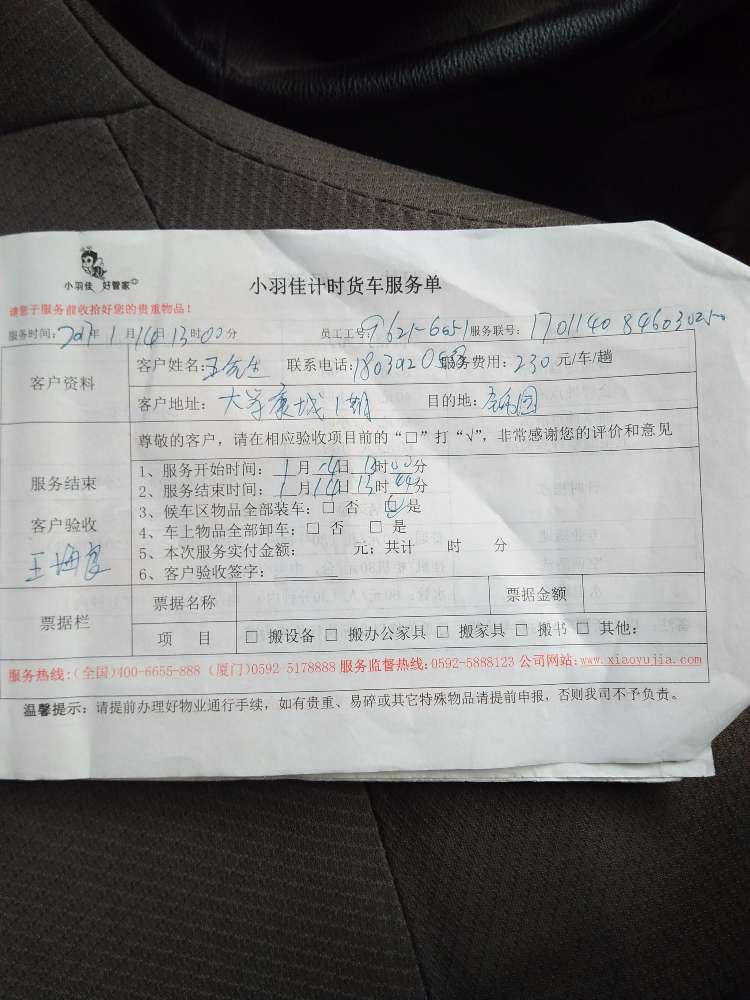 小羽佳 好管家
小羽佳计时货车服务单
请您于服务前收拾好您的贵重物品!
服务时间: 2017年 1月 14日 13时 00分 员工工号: 7621-6651 服务联号: 1701140846030250
客户资料
客户姓名: 王先生 联系电话: 服务费用: 230 元/车/趟
客户地址: 大学康城1期 目的地:
尊敬的客户,请在相应验收项目前的“□”打“√”,非常感谢您的评价和意见
服务结束
客户验收
1、服务开始时间: 1月 14日 13时 00分
2、服务结束时间: 1月 14日 13时 分
3、候车区物品全部装车: □ 否 □ 是
4、车上物品全部卸车: □ 否 □ 是
5、本次服务实付金额: 元; 共计 时 分
6、客户验收签字:
票据栏
票据名称 票据金额
项 目 □ 搬设备 □ 搬办公家具 □ 搬家具 □ 搬书 □ 其他:
服务热线:(全国)400-6655-888 (厦门)0592-5178888 服务监督热线:0592-5888123 公司网站:www.xiaoyujia.com
温馨提示: 请提前办理好物业通行手续,如有贵重、易碎或其它特殊物品请提前申报,否则我司不予负责。